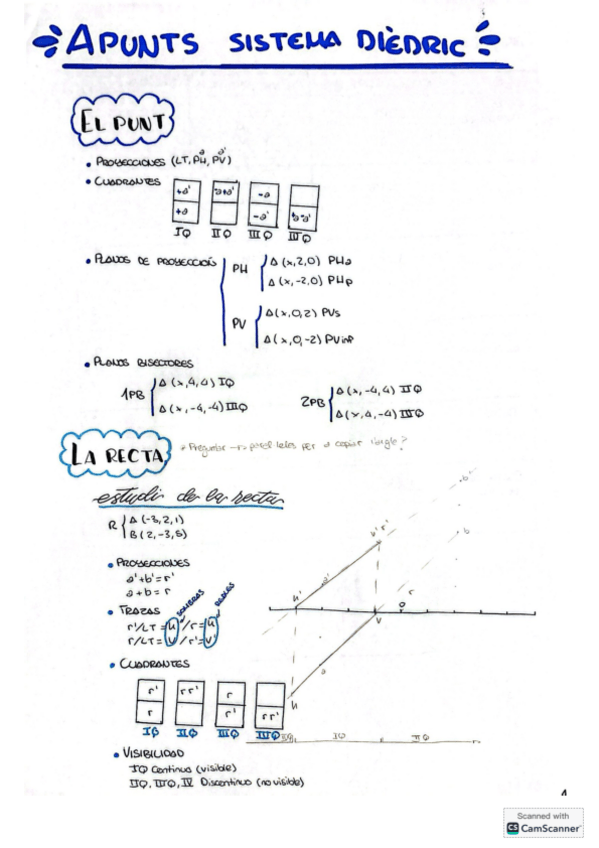 APUNTS SISTEMA DIÈDRIC
EL PUNT
• PROYECCIONES (LT, PH, PV)
a a'
• CUADRANTES
+a' a+a' -a
+a -a' a-a'
IQ IIQ IIIQ IIIIQ
• PLANOS DE PROYECCIÓN
PH
A (x,2,0) PHa
A (x,-2,0) PHp
PV
A (x,0,2) PVs
A (x,0,-2) PVinf
• PLANOS BISECTORES
1PB
A (x,4,4) IQ
A (x,-4,-4) IIIQ
2PB
A (x,-4,4) IIQ
A (x,4,-4) IIIIQ
LA RECTA
* Preguntar → paral·leles per a copiar
estudi de la recta
R
A (-3,2,1)
B (2,-3,5)
• PROYECCIONES
a'+b'=r'
a+b=r
• TRAZAS
r'/LT = h' /r = h
r/LT = v /r' = v'
REALES
• CUADRANTES
r' rr' r
r r' rr'
IQ IIQ IIIQ IIIIQ
• VISIBILIDAD
IQ Continua (visible)
IIQ, IIIQ, IV Discontinua (no visible)
b'
v' r'
b
a'
h'
r
O
v
a
h
IQ IIQ
r
1
Scanned with
CS CamScanner